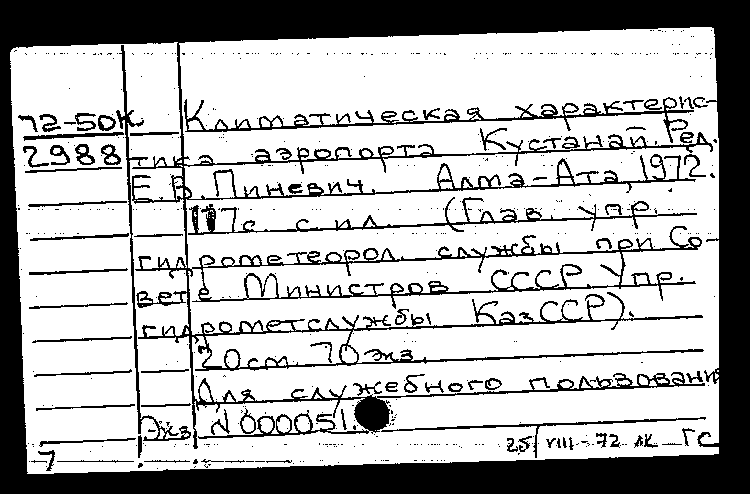 72-50К Климатическая характерис-
2988 тика аэропорта Кустанай. Ред.
Е.В. Пиневич. Алма-Ата, 1972.
117с. с ил. (Глав. упр.
гидрометеорол. службы при Со-
вете Министров СССР. Упр.
гидрометслужбы КазССР).
20см. 70 экз.
Для служебного пользования
Экз. N 000051.
25/VIII-72 ЛК ГС
7